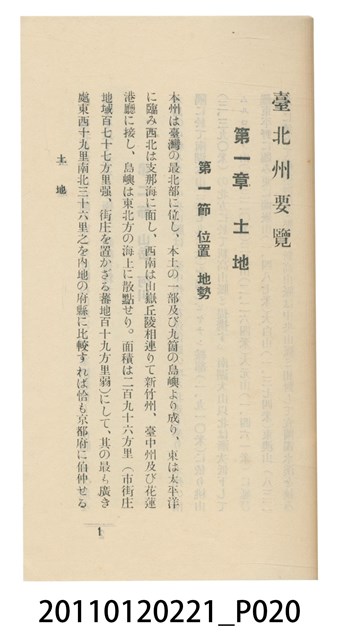 臺北州要覽
第一章 土地
第一節 位置 地勢
本州は臺灣の最北部に位し、本土の一部及び九箇の島嶼より成り、東は太平洋
に臨み西北は支那海に面し、西南は山嶽丘陵相連りて新竹州、臺中州及び花蓮
港廳に接し、島嶼は東北方の海上に散點せり。面積は二百九十六方里(市街庄
地域百七十七方里强、街庄を置かざる蕃地百十九方里弱)にして、其の最も廣き
處東西十九里南北三十六里之を內地の府縣に比較すれば恰も京都府に伯仲せる
土地
1
20110120221_P020